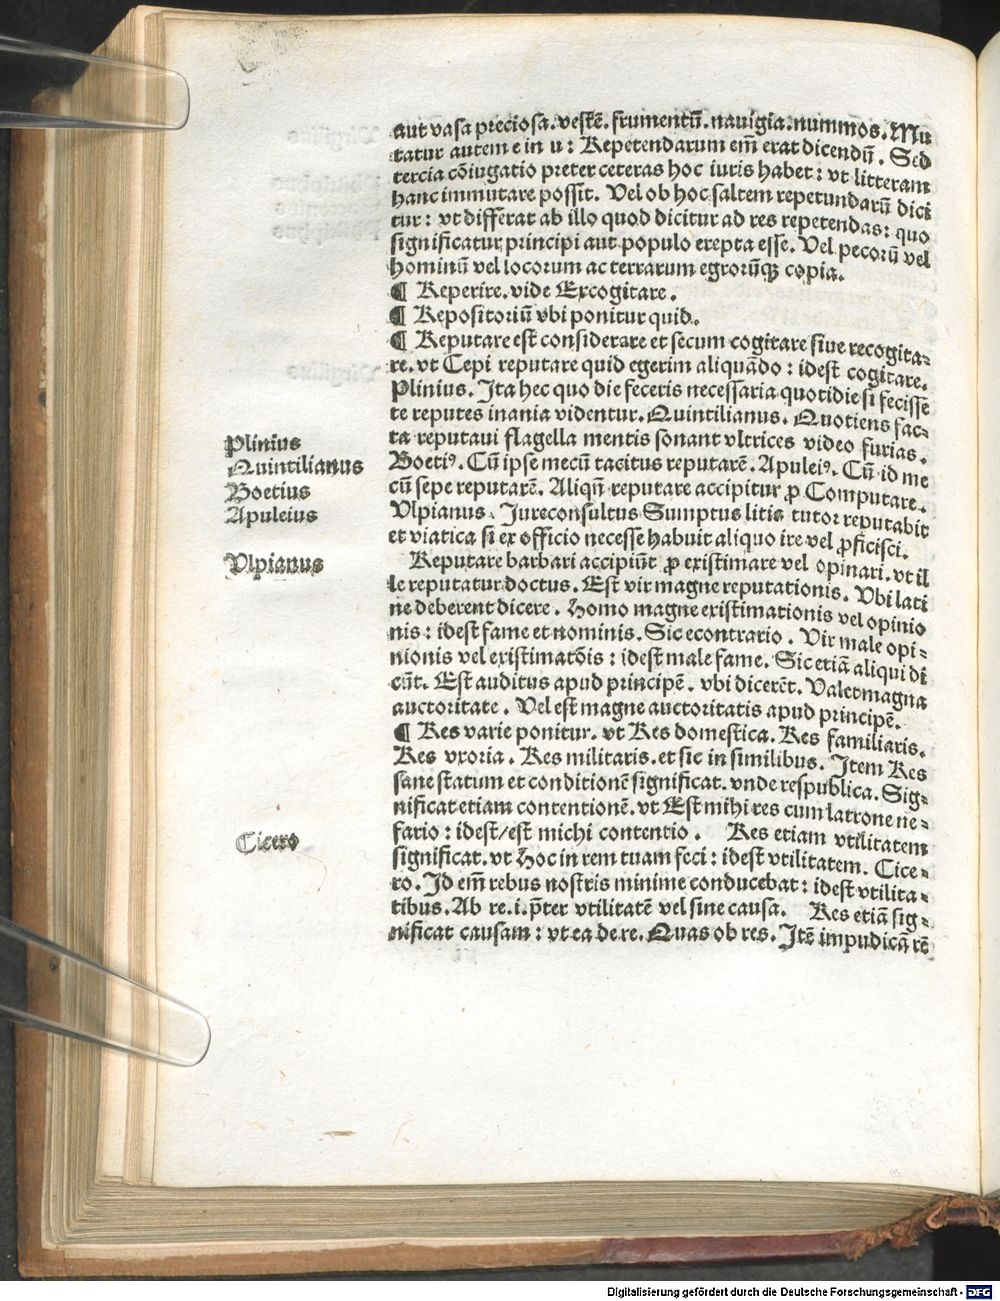 aut vasa preciosa. vestē. frumentū. nauigia. nummos. Mu
tatur autem e in u: Repetendarum em̄ erat dicendū. Sed
tercia cōiugatio preter ceteras hoc iuris habet: vt litteram
hanc immutare possit. Vel ob hoc saltem repetundarū dici
tur: vt differat ab illo quod dicitur ad res repetendas: quo
significatur principi aut populo erepta esse. Vel pecorū vel
hominū vel locorum ac terrarum egrorūqꝫ copia.
¶ Reperire. vide Excogitare.
¶ Repositoriū vbi ponitur quid.
¶ Reputare est considerare et secum cogitare siue recogita⸗
re. vt Cepi reputare quid egerim aliquādo: idest cogitare.
Plinius. Ita hec quo die feceris necessaria quotidie si fecisse
te reputes inania videntur. Quintilianus. Quotiens fac⸗
ta reputaui flagella mentis sonant vltrices video furias.
Boetiꝰ. Cū ipse mecū tacitus reputarē. Apuleiꝰ. Cū id me
cū sepe reputarē. Aliqn̄ reputare accipitur ꝓ Computare.
Vlpianus. Jureconsultus Sumptus litis tutor reputabit
et viatica si ex officio necesse habuit aliquo ire vel ꝓficisci.
Reputare barbari accipiūt ꝓ existimare vel opinari. vt il
le reputatur doctus. Est vir magne reputationis. Vbi lati
ne deberent dicere. Homo magne existimationis vel opinio
nis: idest fame et nominis. Sic econtrario. Vir male opi⸗
nionis vel existimatōis: idest male fame. Sic etiā aliqui di
cūt. Est auditus apud principē. vbi dicerēt. Valet magna
auctoritate. Vel est magne auctoritatis apud principē.
¶ Res varie ponitur. vt Res domestica. Res familiaris.
Res vxoria. Res militaris. et sic in similibus. Item Res
sane statum et conditionē significat. vnde respublica. Sig⸗
nificat etiam contentionē. vt Est mihi res cum latrone ne⸗
fario: idest/est michi contentio. Res etiam vtilitatem
significat. vt Hoc in rem tuam feci: idest vtilitatem. Cice⸗
ro. Id em̄ rebus nostris minime conducebat: idest vtilita⸗
tibus. Ab re .i. p̄ter vtilitatē vel sine causa. Res etiā sig⸗
nificat causam: vt ea de re. Quas ob res. Itē impudicā rē
Plinius
Quintilianus
Boetius
Apuleius
Vlpianus
Cicero
Digitalisierung gefördert durch die Deutsche Forschungsgemeinschaft - DFG